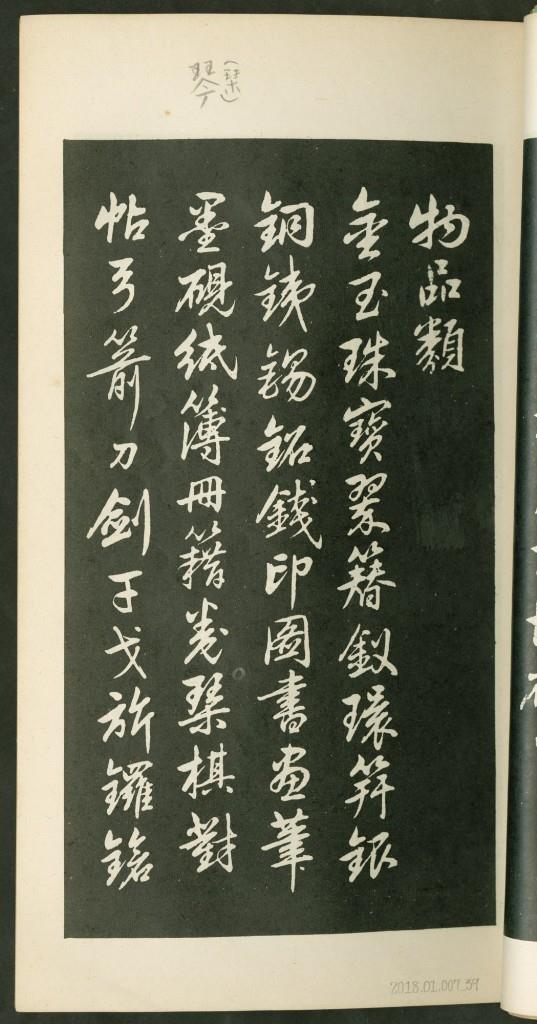 琴(栞)
物品類
金玉珠寶翠簪釵環笄銀
銅鉄錫鉛錢印圖書畫筆
墨硯紙簿冊籍卷琴棋對
帖弓箭刀劍干戈旂鑼鎗
2018.01.007_39